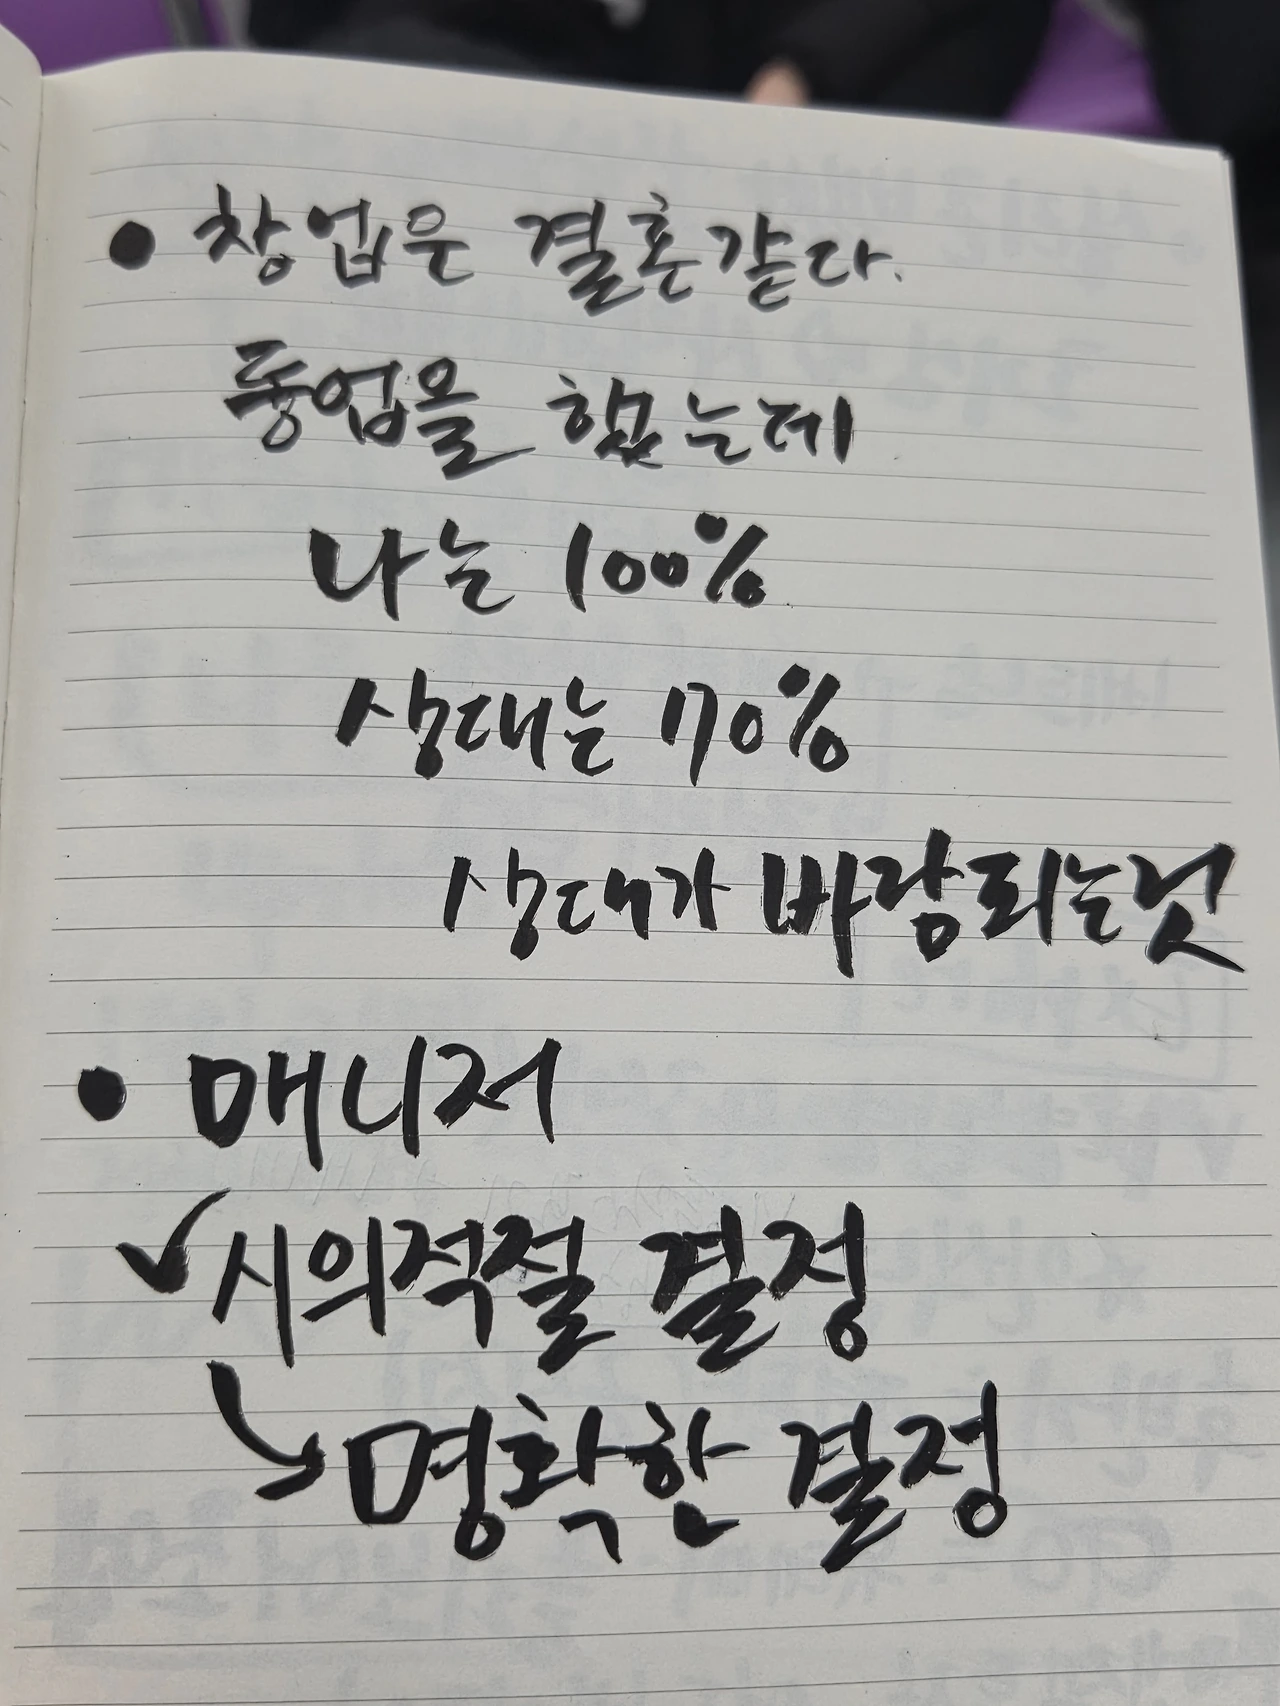 • 창업은 결혼같다.
동업을 했는데
나는 100%
상대는 70%
상대가 바람되는것
• 매니저
✓시의적절 결정
↳ 명확한 결정